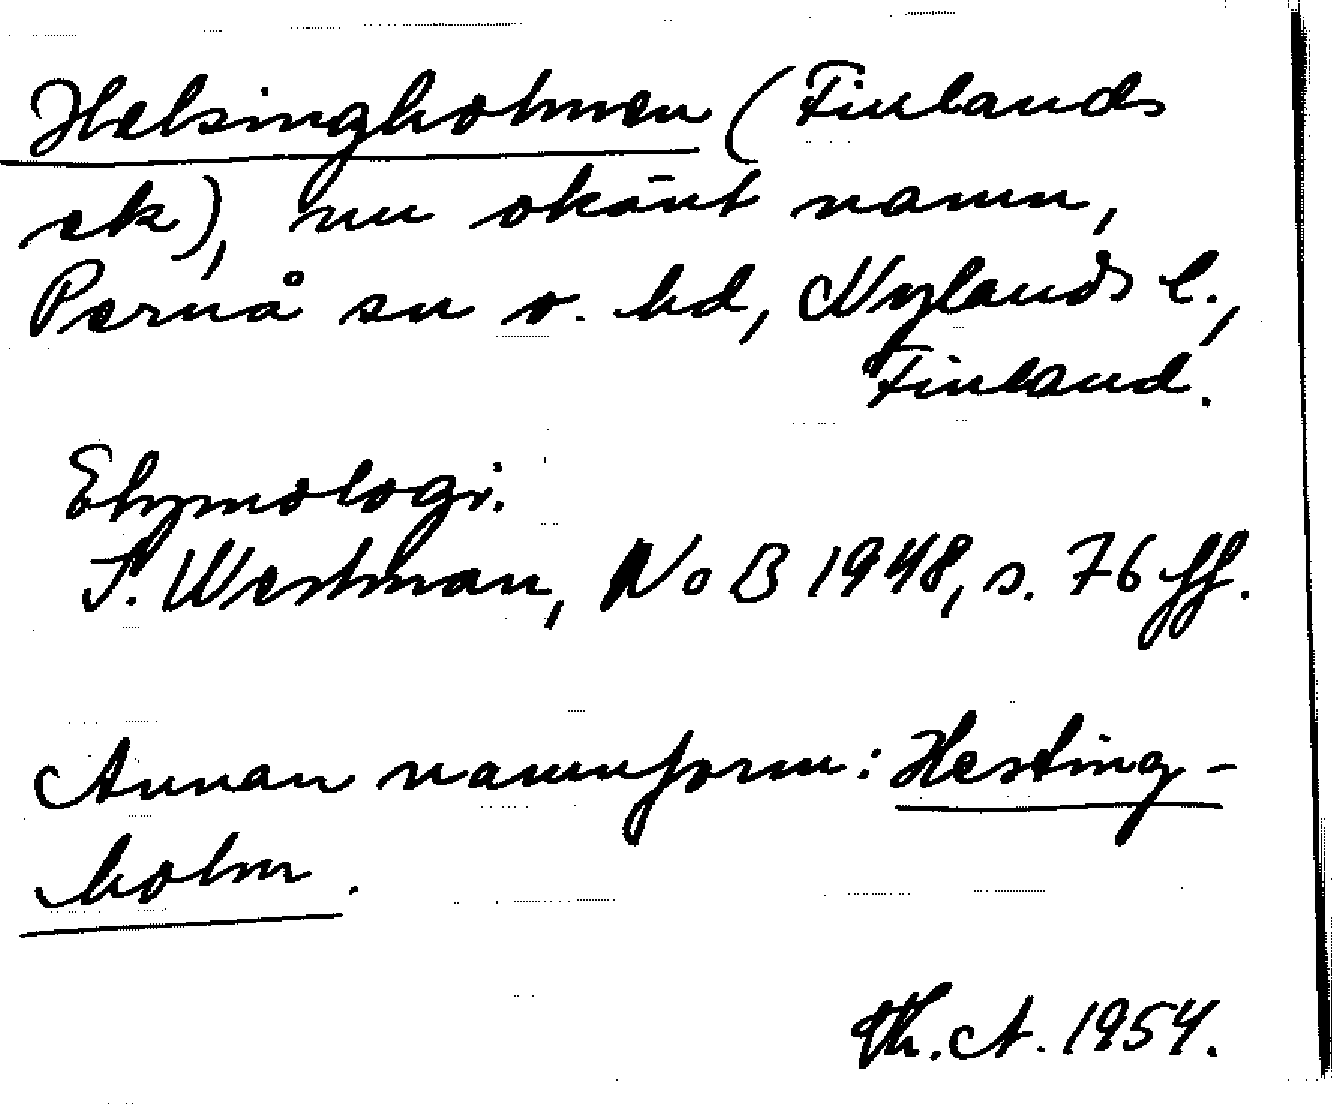 Helsingholmen (Finlands
ek), nu okänt namn,
Pernå sn o. hd, Nylands l.,
Finland.
Etymologi.
I. Westman, NoB 1948, s. 76 ff.
Annan namnform: Hesting-
holm.
Th. A. 1954.